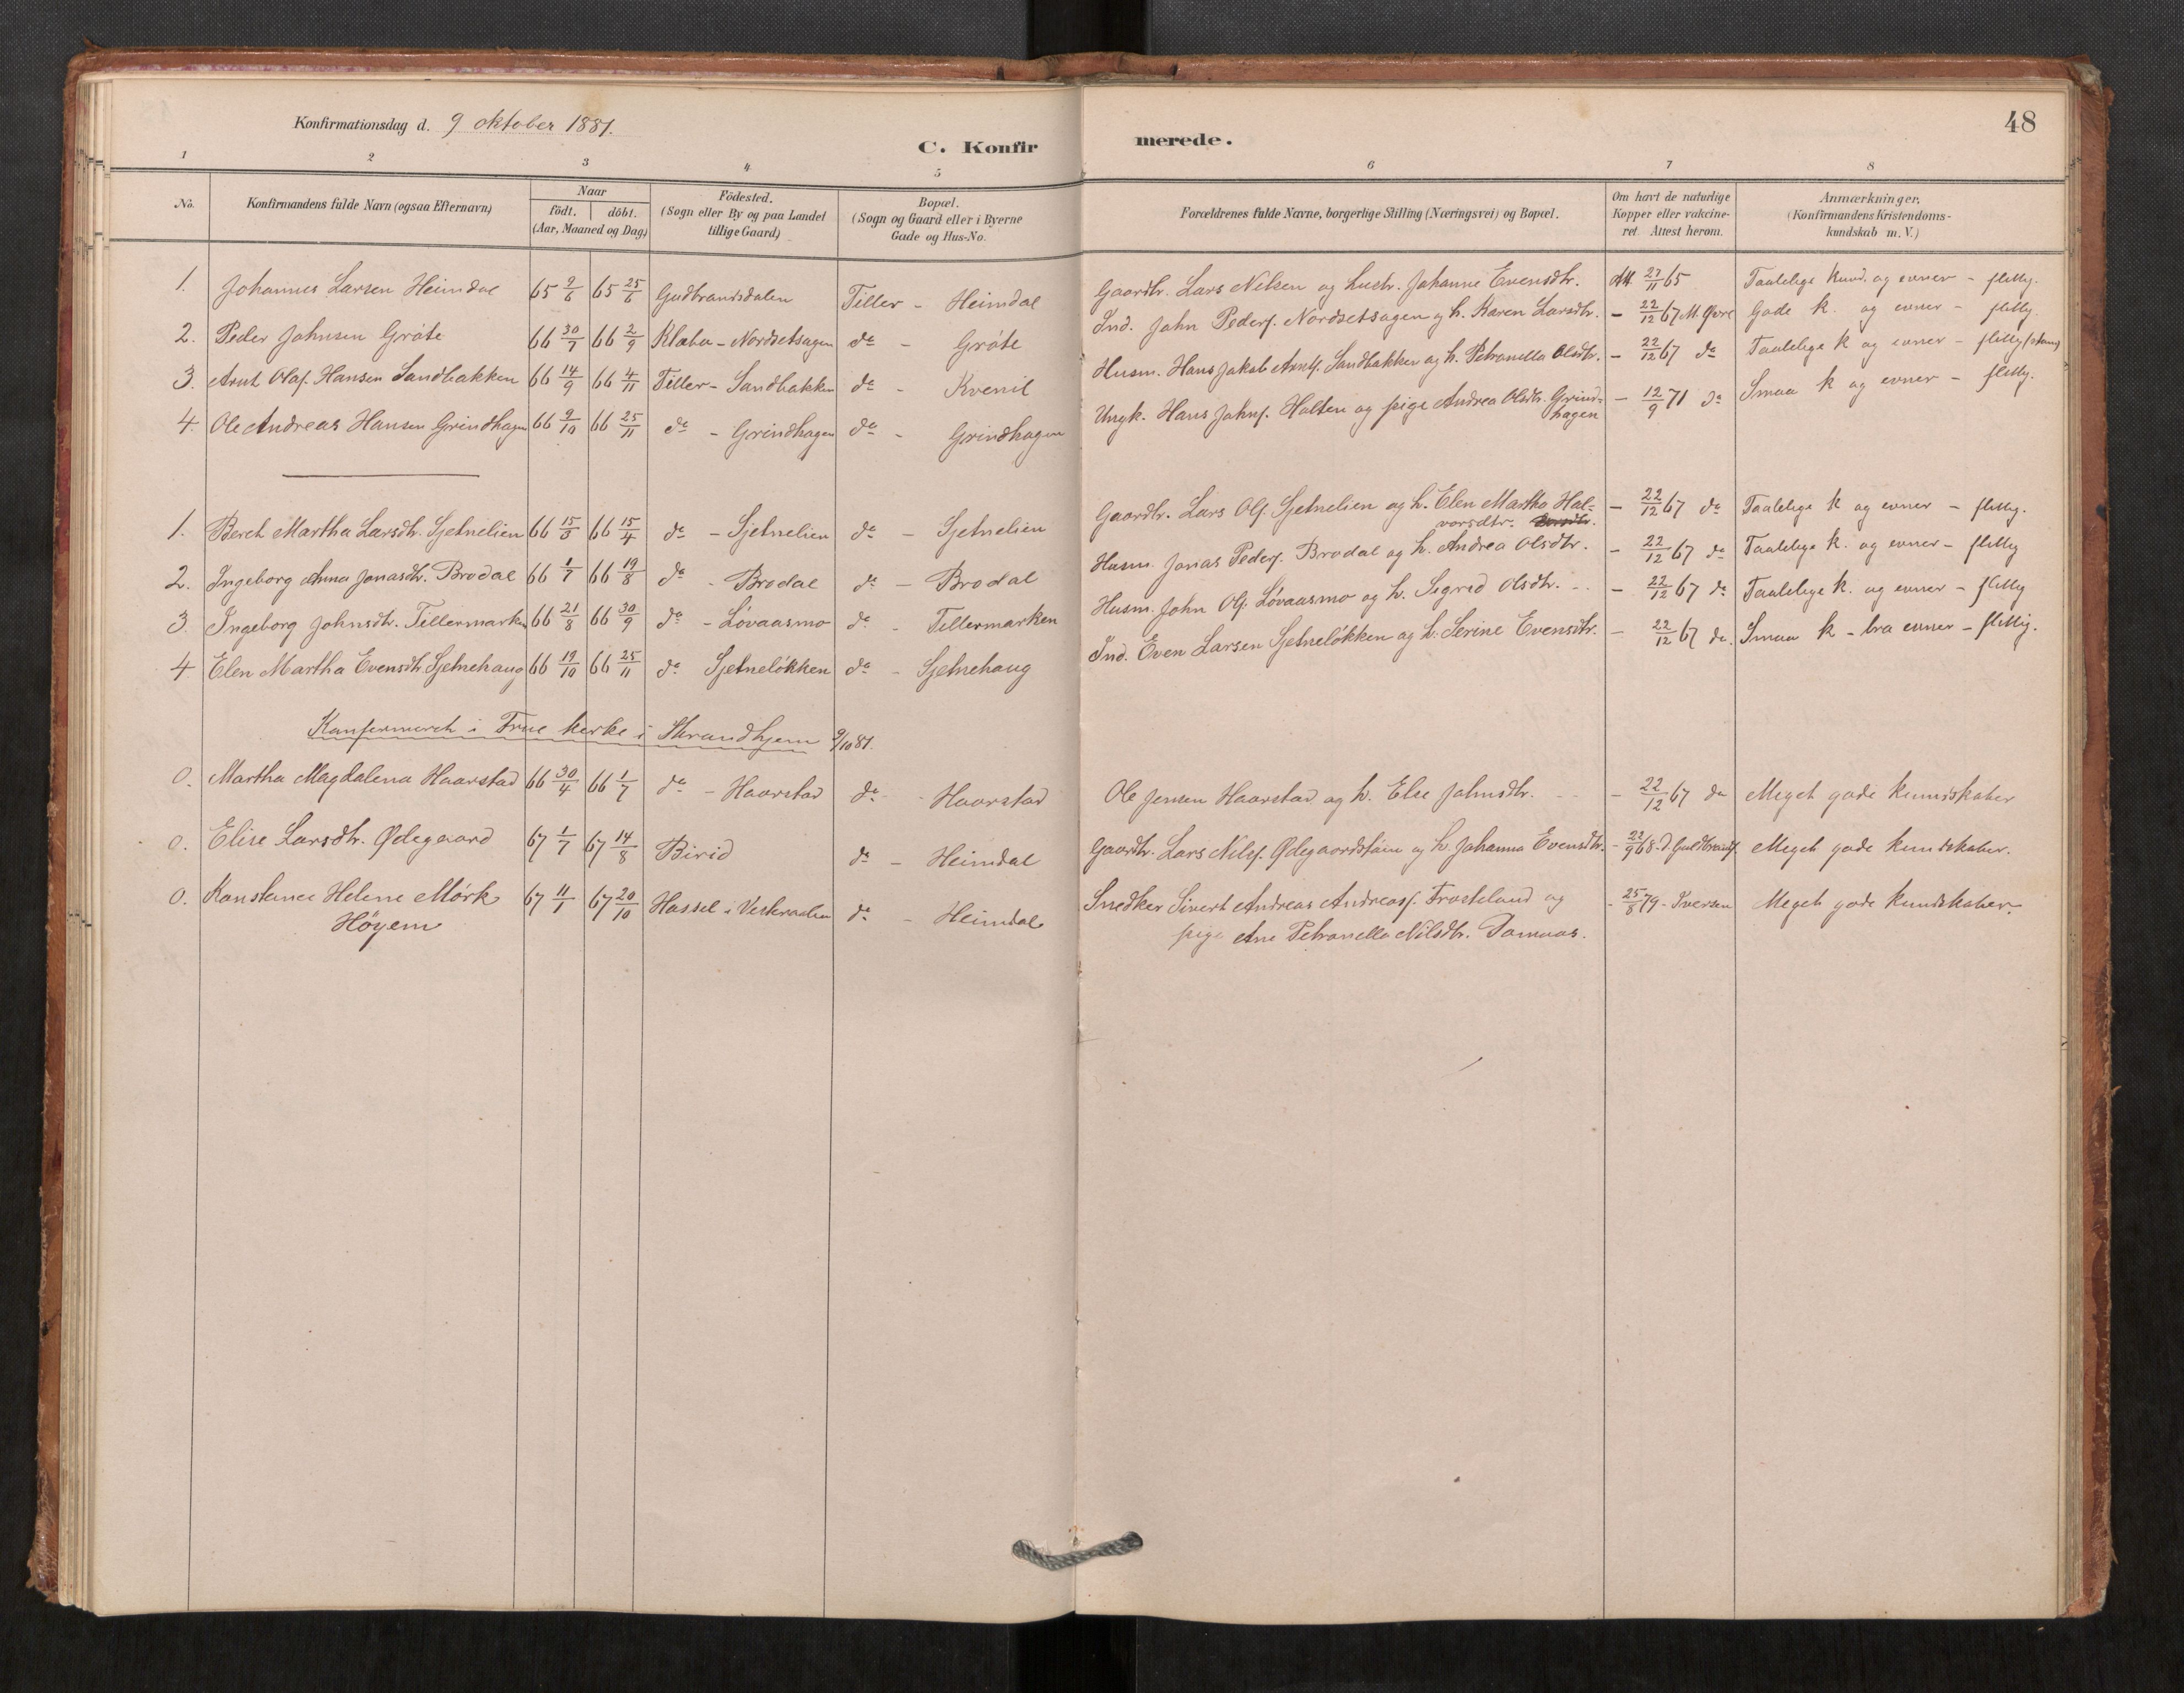 48
Konfirmationsdag d. 9 oktober 1881.
C. Konfir merede.
1 2 3 4 5 6 7 8
No. Konfirmandens fulde Navn (ogsaa Efternavn) Naar født. døbt. (Aar, Maaned og Dag) Födested. (Sogn eller By og paa Landet tillige Gaard) Bopæl. (Sogn og Gaard eller i Byerne Gade og Hus-No. Forældrenes fulde Navne, borgerlige Stilling (Næringsvei) og Bopæl. Om havt de naturlige Kopper eller vakcineret. Attest herom. Anmærkninger. (Konfirmandens Kristendomskundskab m. V.)
1. Johannes Larsen Heimdal 65 9/6 65 25/6 Gudbrandsdalen Tiller - Heimdal Gaardbr. Lars Nelsen og hustr. Johanne Evensdtr. Att 27/11 65 Taalelige kund. og evner - flittig.
2. Peder Johnsen Gröte 66 30/7 66 2/9 Klæbu - Nordsetsagen do - Gröte Ind. John Peders. Nordsetsagen og h. Karen Larsdtr. - 22/12 67 M. Qvre Gode k. og evner - flittig.
3. Arnt Olaf Hansen Sandbakken 66 14/9 66 4/11 Tiller - Sandbakken do - Kvenil Husm. Hans Jakob Arnts. Sandbakken og h. Petranella Olsdtr. - 22/12 67 do Taalelige k og evner - flittig (stam)
4. Ole Andreas Hansen Grindhagen 66 9/10 66 25/11 do - Grindhagen do - Grindhagen Ungk. Hans Johns. Halten og pige Andrea Olsdtr. Grind-
hagen - 12/9 71 do Smaa k og evner - flittig.
1. Beret Martha Larsdtr. Sjetnelien 66 15/3 66 15/4 do - Sjetnelien do - Sjetnelien Gaardbr. Lars Ols. Sjetnelien og h. Elen Martha Hal-
vorsdtr. - 22/12 67 do Taalelige k og evner - flittig.
2. Ingeborg Anna Jonasdtr. Brodal 66 1/7 66 19/8 do - Brodal do - Brodal Husm. Jonas Peders. Brodal og h. Andrea Olsdtr. - 22/12 67 do Taalelige k. og evner - flittig
3. Ingeborg Johnsdtr. Tillermarken 66 21/8 66 30/9 do - Lövaasmo do - Tillermarken Husm. John Ols. Lövaasmo og h. Sigrid Olsdtr. - 22/12 67 do Taalelige k. og evner - flittig
4 Elen Martha Evensdtr. Sjetnehaug 66 19/10 66 25/11 do Sjetnelökken do - Sjetnehaug Ind. Even Larsen Sjetnelökken og h. Serine Evensdtr. - 22/12 67 do. Smaa k - bra evner - flittig.
Konfermeret i Frue kerke i Thrandhjem 9/10 81.
0. Martha Magdalena Haarstad 66 30/4 66 1/7 do - Haarstad do - Haarstad Ole Jensen Haarstad og h. Else Johnsdtr. - 22/12 67 do Meget gode kundskaber
0. Elise Larsdtr. Ödegaard 67 1/7 67 14/8 Birid do - Heimdal Gaardbr. Lars Nils. og h. Johanna Evensdtr. - 22/9 68 Meget gode kundskaber.
0. Konstance Helene Mörk 67 11/1 67 20/10 Hassel i Vesteraalen do - Heimdal Snedker Sivert Andreas Andreass. Trosteland og - 25/8 79 - Iversen Meget gode kundskaber.
Höyem pige Ane Petranella Nilsdtr.